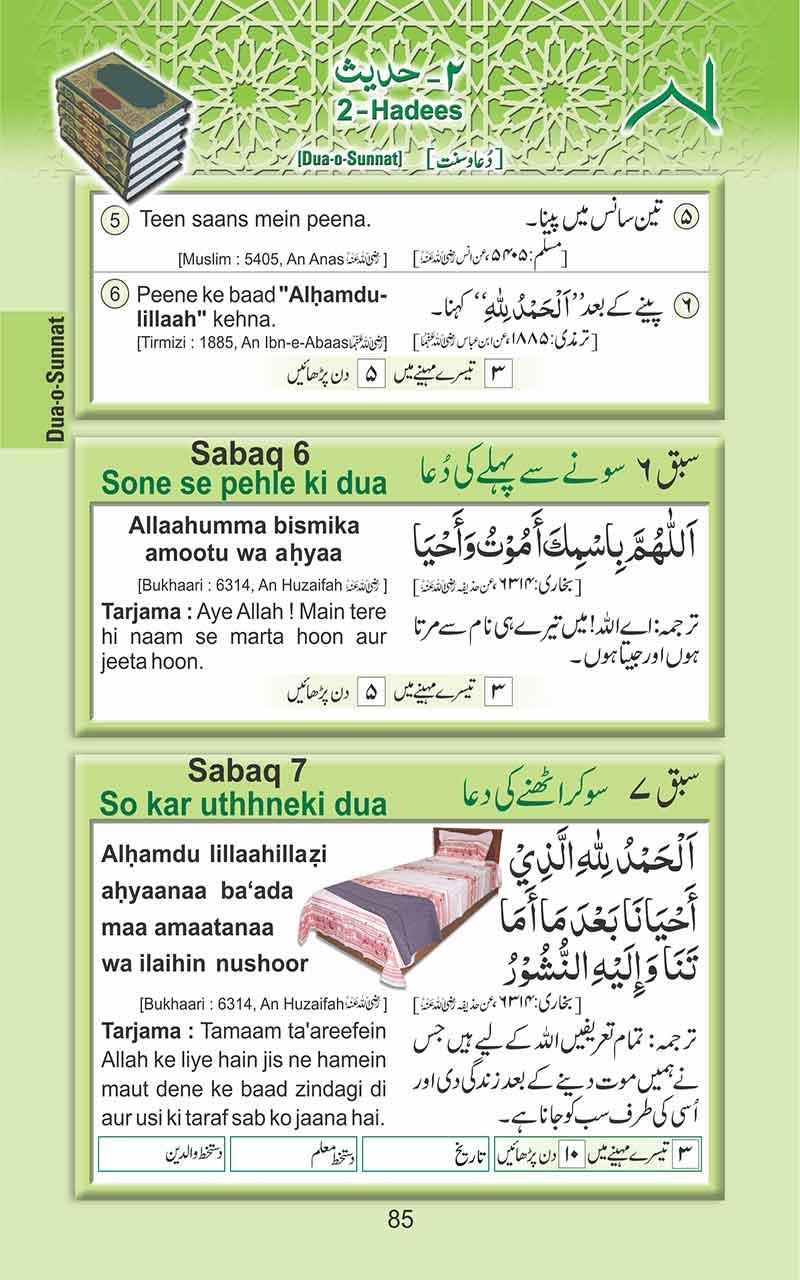 ۲- حدیث
2-Hadees
[Dua-o-Sunnat] [دُعا و سنت]
Dua-o-Sunnat
5 Teen saans mein peena.
۵ تین سانس میں پینا۔
[Muslim : 5405, An Anas رضی اللہ عنہ]
[مسلم: ۵۴۰۵، عن انس رضی اللہ عنہ]
6 Peene ke baad "Alḥamdu-
lillaah" kehna.
۶ پینے کے بعد ”اَلْحَمْدُ لِلّٰهِ“ کہنا۔
[Tirmizi : 1885, An Ibn-e-Abaas رضی اللہ عنہما]
[ترمذی: ۱۸۸۵، عن ابن عباس رضی اللہ عنہما]
۳ تیسرے مہینے میں ۵ دن پڑھائیں
Sabaq 6
Sone se pehle ki dua
سبق ۶ سونے سے پہلے کی دُعا
Allaahumma bismika
amootu wa aḥyaa
اَللّٰهُمَّ بِاسْمِكَ أَمُوْتُ وَأَحْيَا
[Bukhaari : 6314, An Huzaifah رضی اللہ عنہ]
[بخاری: ۶۳۱۴، عن حذیفہ رضی اللہ عنہ]
Tarjama : Aye Allah ! Main tere
hi naam se marta hoon aur
jeeta hoon.
ترجمہ: اے اللہ! میں تیرے ہی نام سے مرتا
ہوں اور جیتا ہوں۔
۳ تیسرے مہینے میں ۵ دن پڑھائیں
Sabaq 7
So kar uthhneki dua
سبق ۷ سو کر اٹھنے کی دعا
Alḥamdu lillaahillaẓi
aḥyaanaa ba‘ada
maa amaatanaa
wa ilaihin nushoor
اَلْحَمْدُ لِلّٰهِ الَّذِيْ
أَحْيَانَا بَعْدَ مَا أَمَا
تَنَا وَإِلَيْهِ النُّشُوْرُ
[Bukhaari : 6314, An Huzaifah رضی اللہ عنہ]
[بخاری: ۶۳۱۴، عن حذیفہ رضی اللہ عنہ]
Tarjama : Tamaam ta'areefein
Allah ke liye hain jis ne hamein
maut dene ke baad zindagi di
aur usi ki taraf sab ko jaana hai.
ترجمہ: تمام تعریفیں اللہ کے لیے ہیں جس
نے ہمیں موت دینے کے بعد زندگی دی اور
اُسی کی طرف سب کو جانا ہے۔
۳ تیسرے مہینے میں ۱۰ دن پڑھائیں تاریخ دستخط معلم دستخط والدین
85